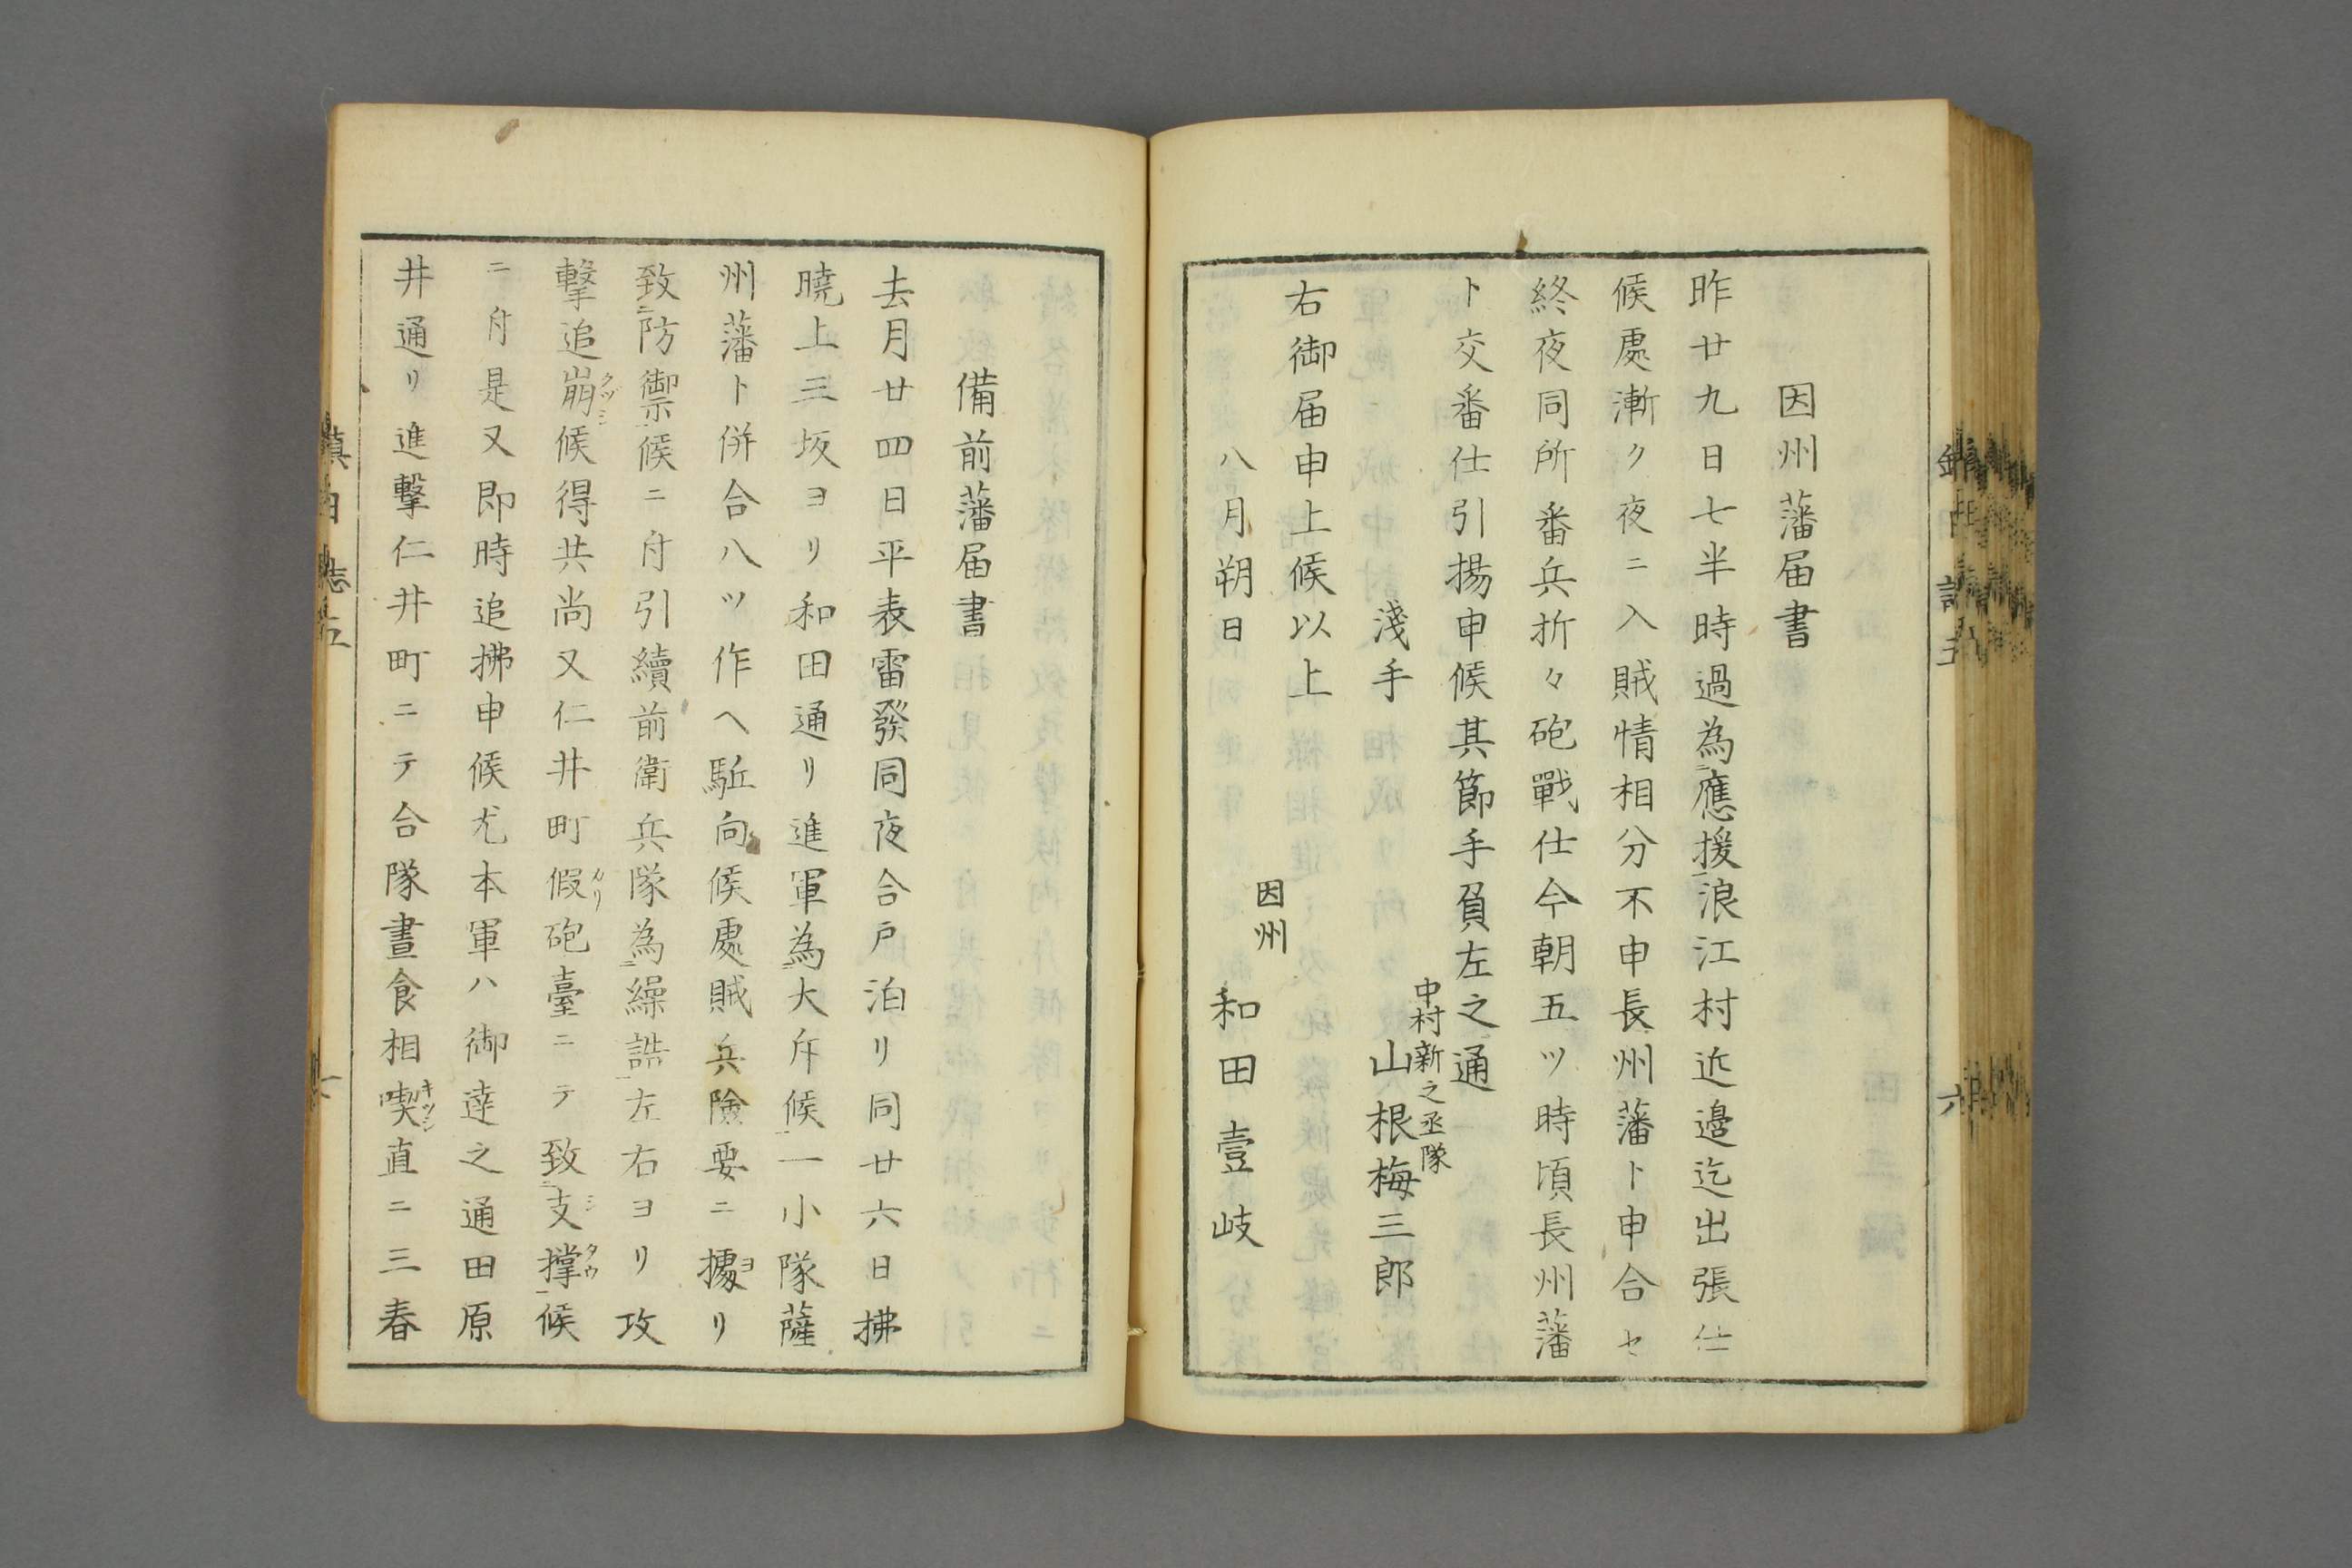 因州藩届書
昨廿九日七半時過為ニ應援一浪江村近邉迄出張仕
候處漸ク夜ニ入賊情相分不申長州藩ト申合セ
終夜同所番兵折々砲戰仕今朝五ツ時頃長州藩
ト交番仕引揚申候其節手負左之通
中村新之丞隊
淺手 山根梅三郎
右御届申上候以上
因州
八月朔日 和田壹岐
備前藩届書
去月廿四日平表雷發同夜合戸泊リ同廿六日拂
曉上三坂ヨリ和田通リ進軍為ニ大斥候一一小隊薩
州藩ト併合八ツ作ヘ駈向候處賊兵險要ニ據リ
致ニ防禦一候ニ付引續前衛兵隊為ニ繰誥一左右ヨリ攻
擊追崩候得共尚又仁井町假砲臺ニテ致ニ支撐一候
ニ付是又即時追拂申候尤本軍ハ御達之通田原
井通リ進擊仁井町ニテ合隊晝食相喫直ニ三春